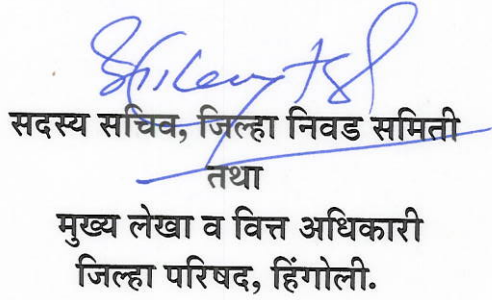 सदस्य सचिव, जिल्हा निवड समिती
तथा
मुख्य लेखा व वित्त अधिकारी
जिल्हा परिषद, हिंगोली.